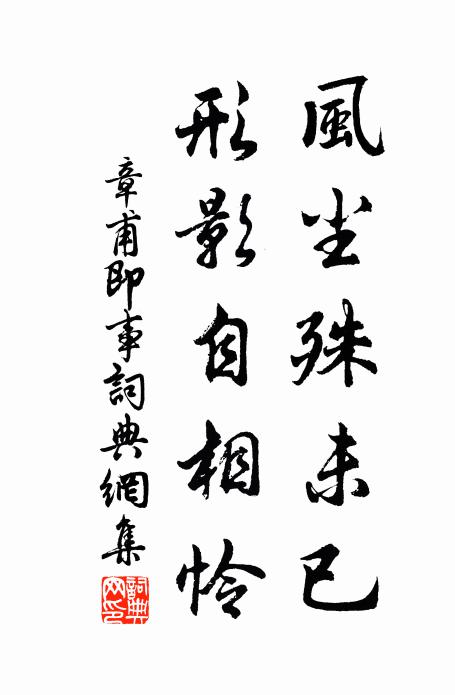 風尘殊未已
形影自相怜
章甫即事詞典網集
詞典網印